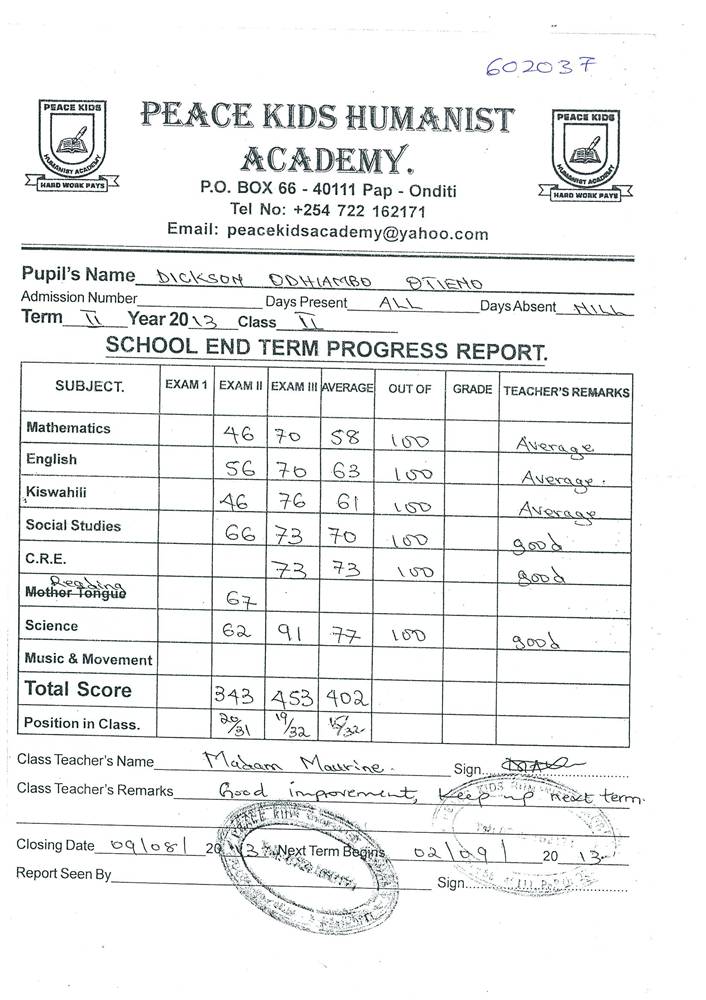 602037
PEACE KIDS
HUMANIST ACADEMY
HARD WORK PAYS
PEACE KIDS HUMANIST
ACADEMY.
PEACE KIDS
HUMANIST ACADEMY
HARD WORK PAYS
P.O. BOX 66 - 40111 Pap - Onditi
Tel No: +254 722 162171
Email: peacekidsacademy@yahoo.com
Pupil's Name DICKSON ODHIAMBO OTIENO
Admission Number Days Present ALL Days Absent NILL
Term II Year 2013 Class II
SCHOOL END TERM PROGRESS REPORT.
SUBJECT. EXAM 1 EXAM II EXAM III AVERAGE OUT OF GRADE TEACHER'S REMARKS
Mathematics 46 70 58 100 Average
English 56 70 63 100 Average.
Kiswahili 46 76 61 100 Average
Social Studies 66 73 70 100 good
C.R.E. 73 73 100 good
Reading
Mother Tongue 67
Science 62 91 77 100 good
Music & Movement
Total Score 343 453 402
Position in Class. 20/31 19/32
Class Teacher's Name Madam Maurine. Sign
Class Teacher's Remarks Good improvement, keep up next term.
Closing Date 09/08/ 2013 Next Term Begins 02/09/ 2013
Report Seen By Sign
PEACE KIDS